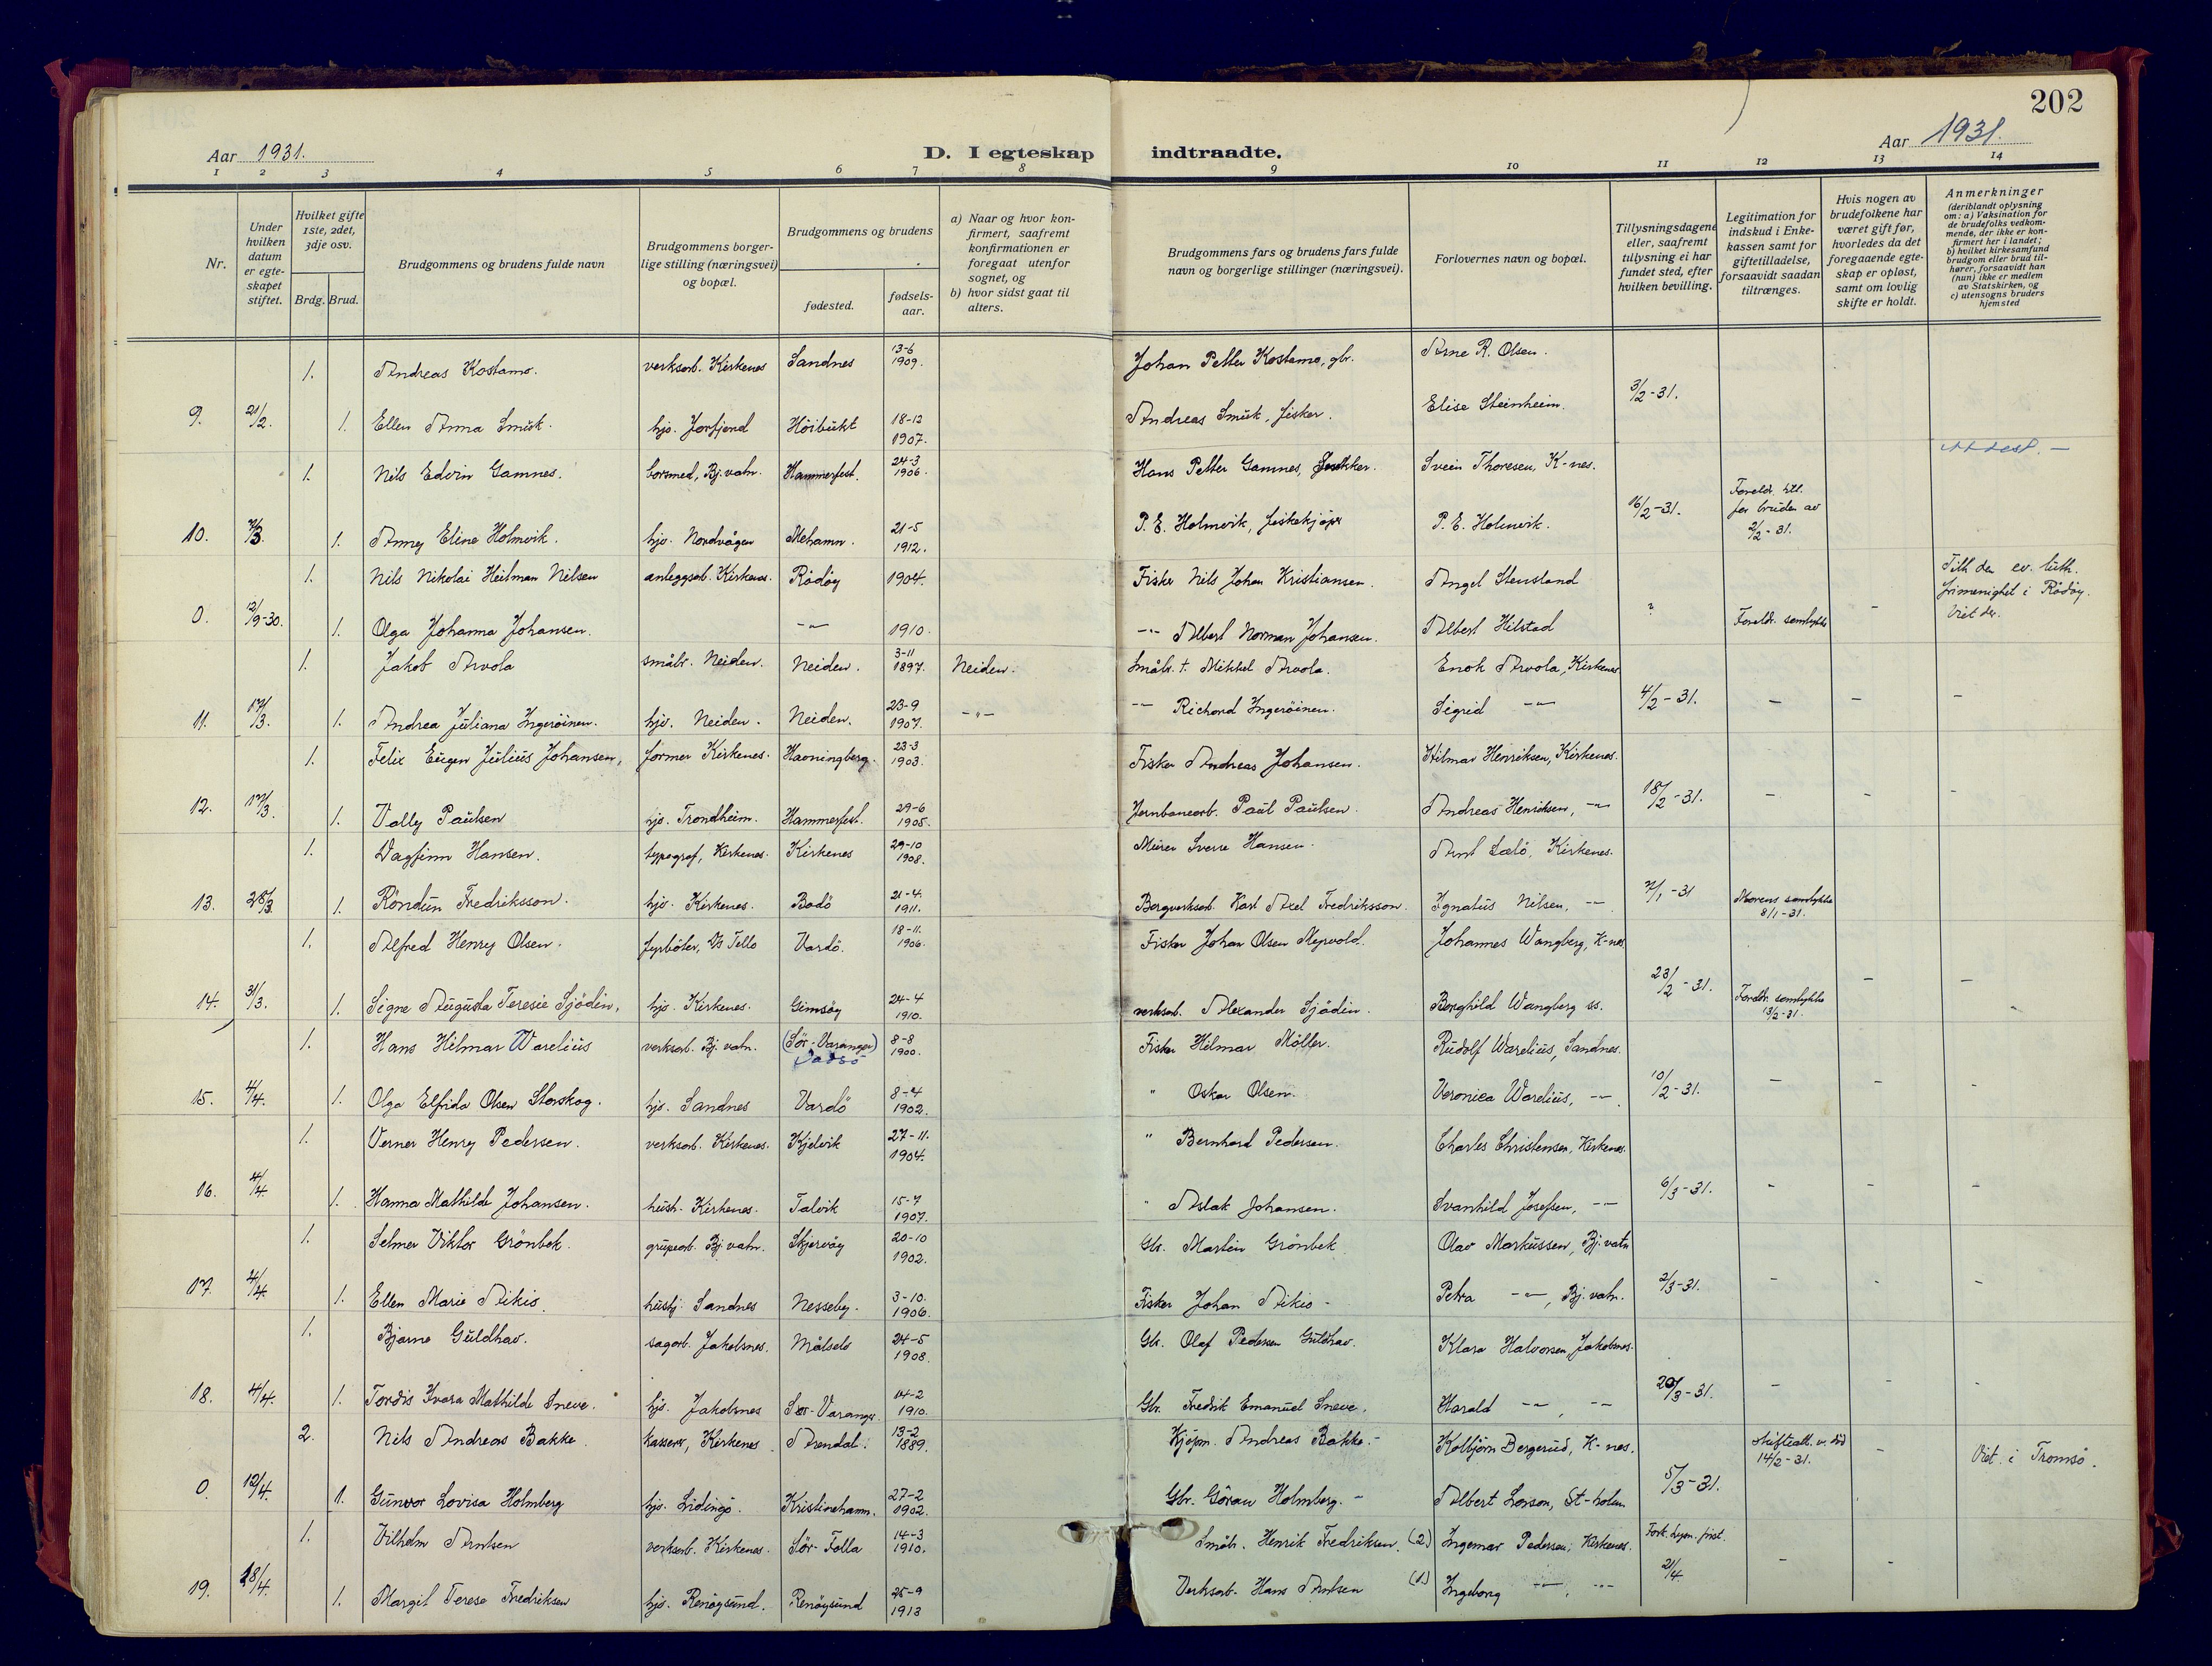 202
Aar 1931.
D. I egteskap indtraadte.
Aar 1931.
1 2 3 4 5 6 7 8 9 10 11 12 13 14
Nr.
Under hvilken datum er egte-skapet stiftet.
Hvilket gifte 1ste, 2det, 3dje osv.
Brdg. Brud.
Brudgommens og brudens fulde navn
Brudgommens borger-lige stilling (næringsvei) og bopæl.
Brudgommens og brudens
fødested.
fødsels-aar.
a) Naar og hvor kon-firmert, saafremt konfirmationen er foregaat utenfor sognet, og
b) hvor sidst gaat til alters.
Brudgommens fars og brudens fars fulde navn og borgerlige stillinger (næringsvei).
Forlovernes navn og bopæl.
Tillysningsdagene eller, saafremt tillysning ei har fundet sted, efter hvilken bevilling.
Legitimation for indskud i Enke-kassen samt for giftetilladelse, forsaavidt saadan tiltrænges.
Hvis nogen av brudefolkene har været gift før, hvorledes da det foregaaende egte-skap er opløst, samt om lovlig skifte er holdt.
Anmerkninger
(deriblandt oplysning om: a) Vaksination for de brudefolks vedkom-mende, der ikke er kon-firmert her i landet; b) hvilket kirkesamfund brudgom eller brud til-hører, forsaavidt han (hun) ikke er medlem av Statskirken, og c) utensogns bruders hjemsted
1. Andreas Kostamo. verksarb. Kirkenes Sandnes 13-6 1909. Johan Petter Kostamo, gbr. Arne R. Olsen.
9. 21/2. 1. Ellen Anna Smuk. hjv. Jarfjord Höibukt 18-12 1907. Andreas Smuk, fisker. Elise Steinheim. 3/2-31.
1. Nils Edvin Gamnes. borsmed, Bj.vatn. Hammerfest. 24-3 1906. Hans Petter Gamnes, Svein Thoresen, K-nes.
10. 7/3. 1. Anny Eline Holmvik. hjv. Nordvågen Mehamn. 21-5 1912. P. E. Holmvik, fiskekjøper P. E. Holmvik. 16/2-31. Foreldr. till. for bruden av 2/2-31.
1. Nils Nikolai Heitman Nilsen anleggsarb. Kirkenes. Rödöy 1904. Fisker Nils Johan Kristiansen. Angel Stensland Tilh. den ev. luth. frimenighet i Rödöy. Viet der.
0. 12/9-30. 1. Olga Johanna Johansen. -"- 1910. -"- Albert Norman Johansen. Albert Hilstad ? Foreldr. samtykke -
1. Jakob Arvola småbr. Neiden. Neiden. 3-11 1897. Neiden. Småbr. † Mikkel Arvola. Enok Arvola, Kirkenes
11. 17/3. 1. Andrea Juliana Ingeröinen. hjv. Neiden. Neiden. 23-9 1907. -"- -"- Richard Ingeröinen. Sigrid -"- 4/2-31. - - -
1. Felix Eugen Julius Johansen, former Kirkenes. Havningberg. 23-3 1903. Fisker Andreas Johansen. Hilmar Henriksen, Kirkenes.
12. 17/3. 1. Vally Paulsen hjv. Trondheim. Hammerfest. 29-6 1905. Jernbanearb. Paul Paulsen. Andreas Henriksen, -"- 18/2-31. - - -
1. Dagfinn Hansen. typograf, Kirkenes. Kirkenes 29-10 1908. Murer Sverre Hansen. Arnt Sælö, Kirkenes.
13. 28/3. 1. Röndun Fredriksson. hjv. Kirkenes. Bodö 21-4. 1911. Bergverksarb. Karl Axel Fredriksson. Ignatius Nilsen, -"- 7/1-31 Morens samtykke 8/1-31.
1. Alfred Henry Olsen. fyrböter, D/s Tello Vardö. 18-11. 1906. Fisker Johan Olsen Myrvold. Johannes Wangberg, K-nes
14. 31/3. 1. Signe Augusta Teresie Sjödin, hjv. Kirkenes. Gimsöy 24-4 1910. verksarb. Alexander Sjödin. Borghild Wangberg ss. 23/2-31. Foreldr. samtykke 13/2-31. - -
1. Hans Hilmar Warelius verksarb. Bj.vatn. (Sör-Varanger) Vadsö 8-8 1900. Fisker Hilmar Möller. Rudolf Warelius, Sandnes.
15. 4/4. 1. Olga Elfrida Olsen Storskog. hjv. Sandnes Vardö 8-4 1902. " Oskar Olsen. Veronica Warelius, -"- 10/2-31. - - -
1. Verner Henry Pedersen. verksarb. Kirkenes. Kjelvik 27-11. 1904. " Bernhard Pedersen. Charles Christensen, Kirkenes.
16. 4/4. 1. Hanna Mathilde Johansen. hush. Kirkenes. Talvik 15-7 1907. " Aslak Johansen. Svanhild Josefsen, -"- 6/3-31. - - -
1. Selmer Viktor Grönbek. grubearb. Bj.vatn. Skjervöy 20-10 1902. Gbr. Martin Grönbek Olav Markussen, Bj.vatn
17. 4/4. 1. Ellen Marie Aikio. hushj. Sandnes Nesseby. 3-10. 1906. Fisker Johan Aikio - Petra -"-, Bj.vatn. 2/3-31. - - -
1. Bjarne Guldhav. sagarb. Jakobsnes. Målselv 24-5 1908. Gbr. Olaf Pedersen Guldhav. Klara Halvorsen, Jakobsnes.
18. 4/4. 1. Tordis Ivara Mathilde Sneve. hjv. Jakobsnes Sør-Varanger. 14-2 1910. Gbr. Fredrik Emanuel Sneve. Harald -"-, -"- 20/3-31. - - -
2. Nils Andreas Bakke. kasserer, Kirkenes. Arendal. 13-2 1889. Kjöpm. Andreas Bakke. - Kolbjörn Bergerud, K-nes. skifteatt. v. död 14/2-31. - Viet i Tromsö.
0. 12/4. 1. Gunvor Lovisa Holmberg hjv. Lidingö. Kristinehamn. 27-2 1902. Gbr. Göran Holmberg. - Albert Larson, St-holm 5/3-31.
1. Vilhelm Arntsen verksarb. Kirkenes. Sör-Folla 14-3 1910. Småbr. Henrik Fredriksen. (2) Ingemar Pedersen, Kirkenes. Fork. lysn. frist.
19. 18/4. 1. Margit Terese Fredriksen hjv. Renöysund. Renöysund 25-9 1913 Verksarb. Hans Arntsen (1.) Ingeborg -"-, -"- 21/4. - -